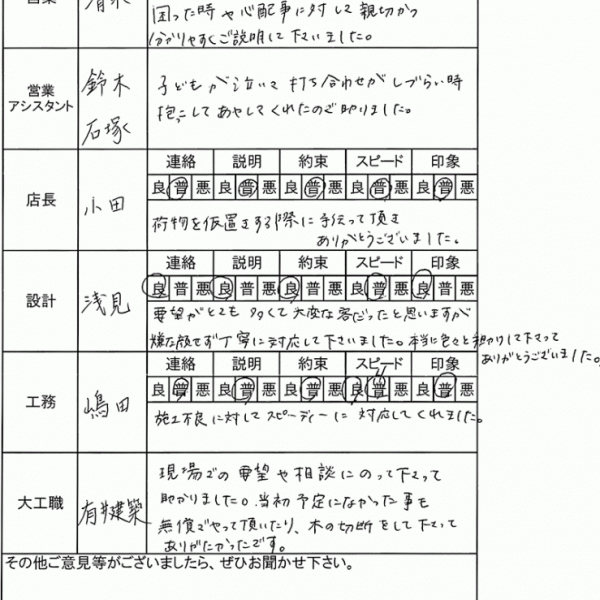 困った時や心配事に対して親切かつ
分かりやすくご説明して下さいました。
営業
アシスタント
鈴木
石塚
子どもが泣いて打ち合わせがしづらい時
抱っこしてあやしてくれたので助かりました。
店長
小田
連絡 説明 約束 スピード 印象
良 普 悪 良 普 悪 良 普 悪 良 普 悪 良 普 悪
荷物を仮置きする際に手伝って頂き
ありがとうございました。
設計
浅見
連絡 説明 約束 スピード 印象
良 普 悪 良 普 悪 良 普 悪 良 普 悪 良 普 悪
要望がとても多くて大変な客だったと思いますが
嫌な顔せず丁寧に対応して下さいました。本当に色々と助かりして下さって
ありがとうございました。
工務
嶋田
連絡 説明 約束 スピード 印象
良 普 悪 良 普 悪 良 普 悪 良 普 悪 良 普 悪
施工不良に対してスピーディーに対応してくれました。
大工職
有井建築
現場での要望や相談にのって下さって
助かりました。当初予定になかった事も
無償でやって頂いたり、木の切断をして下さって
ありがたかったです。
その他ご意見等がございましたら、ぜひお聞かせ下さい。